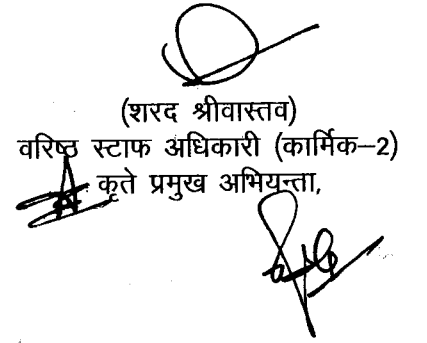 (शरद श्रीवास्तव)
वरिष्ठ स्टाफ अधिकारी (कार्मिक–2)
कृते प्रमुख अभियन्ता,